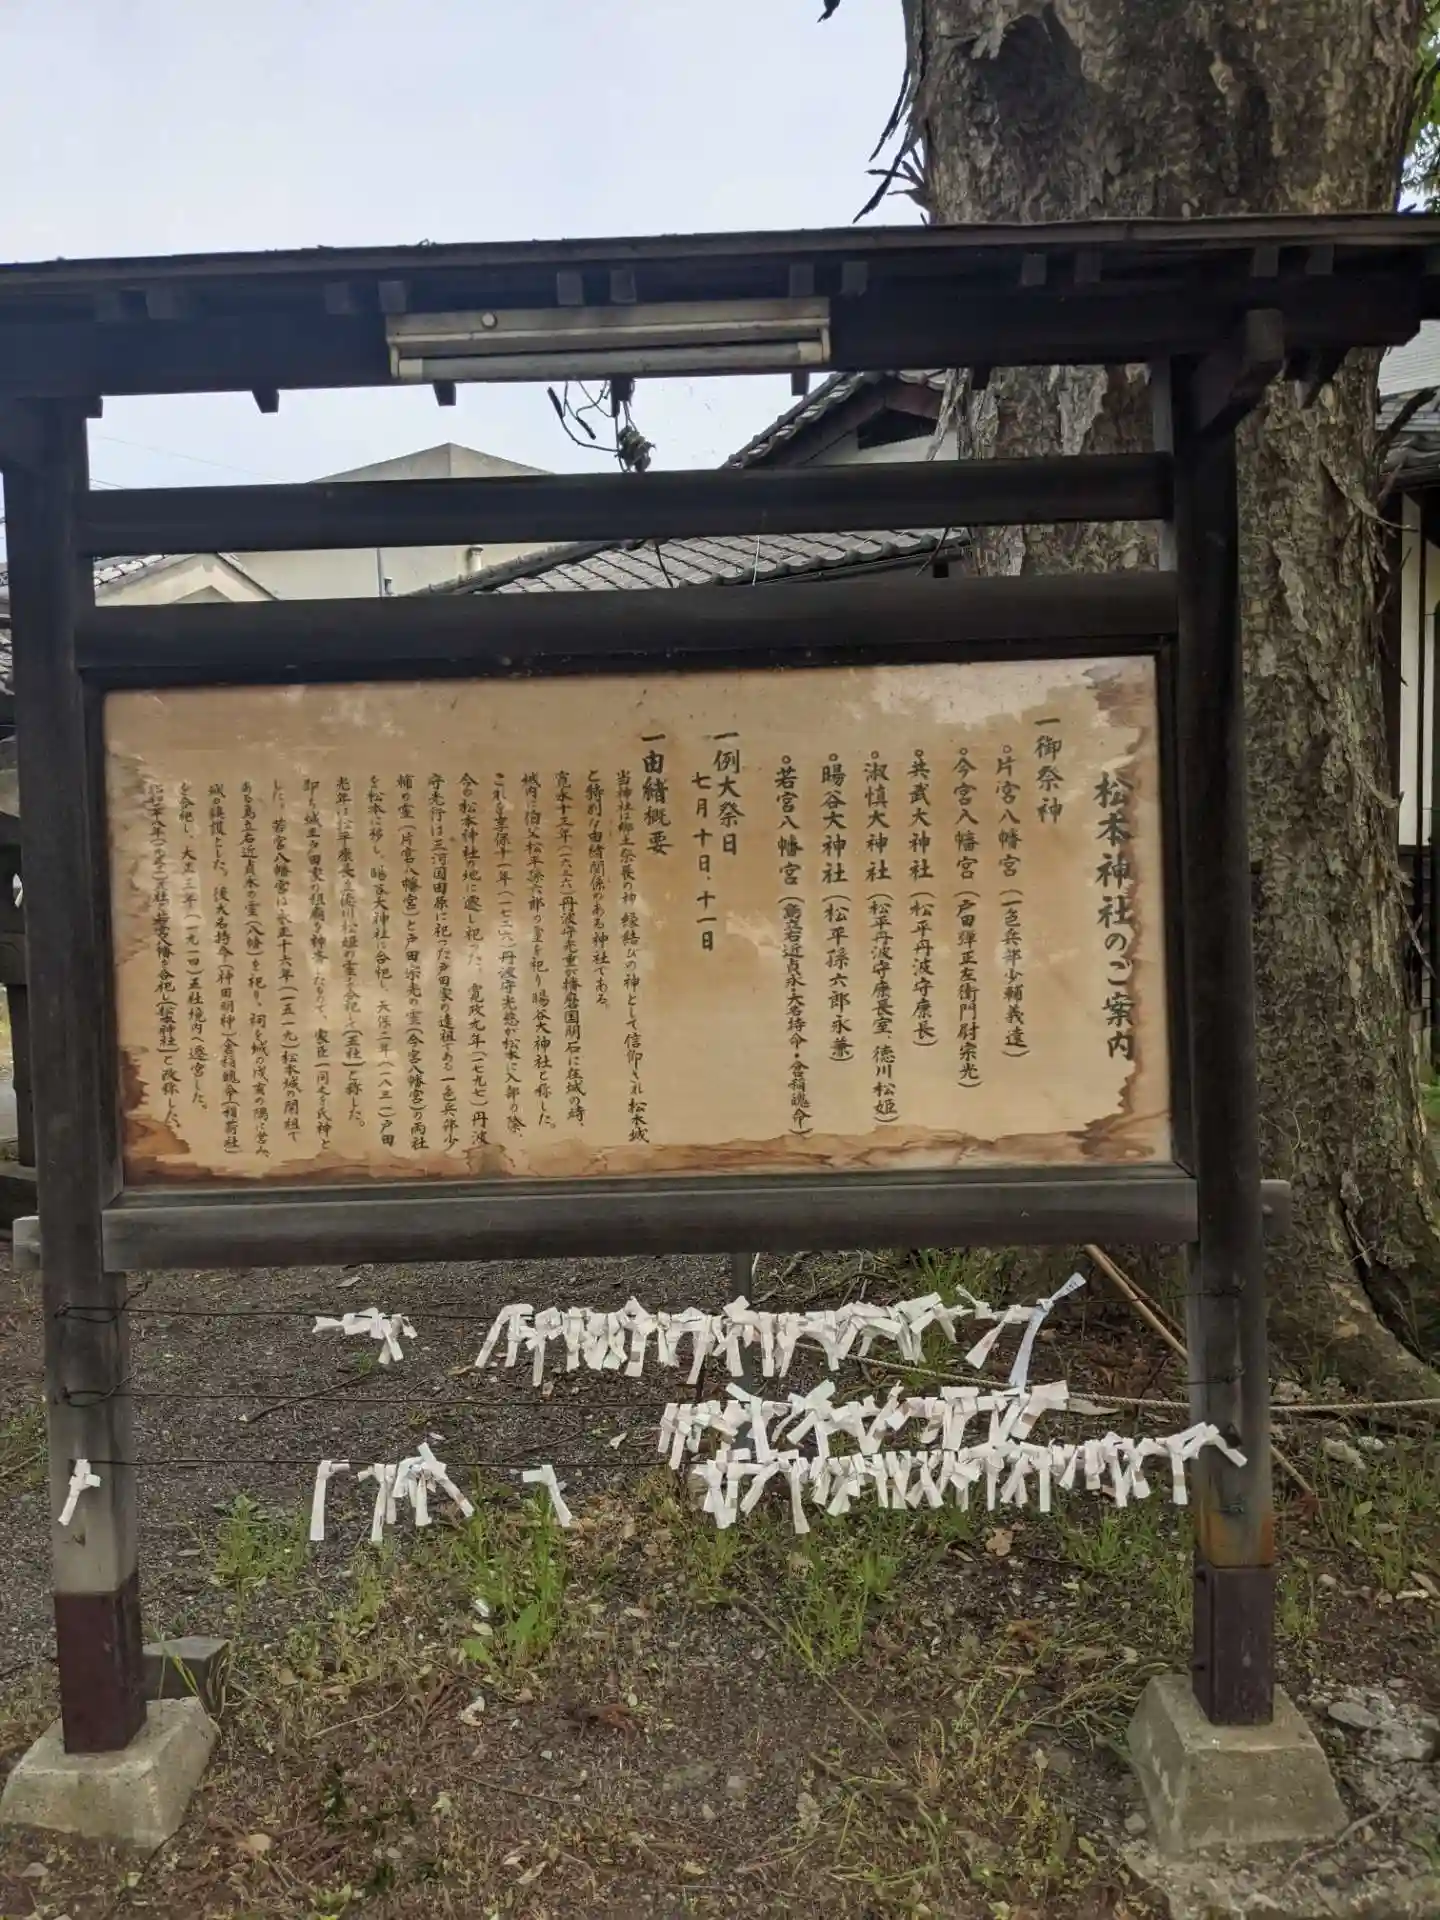 松本神社のご案内
一御祭神
◦片宮八幡宮(一色兵部少輔義遠)
◦今宮八幡宮(戸田弾正左衛門尉宗光)
◦共武大神社(松平丹波守康長)
◦淑慎大神社(松平丹波守康長室、徳川松姫)
◦暘谷大神社(松平孫六郎永兼)
◦若宮八幡宮(島立右近貞永・大名持命・倉稲魂命)
一例大祭日
七月十日、十一日
一由緒概要
当神社は郷土発展の神 縁結びの神として信仰され 松本城
と特別な由緒関係のある神社である。
寛永十三年(一六三六)丹波守光重が播磨国明石に在城の時、
城内に伯父松平孫六郎の霊を祀り 暘谷大神社と称した。
これを享保十一年(一七二六)丹波守光慈が松本に入部の際、
今の松本神社の地に遷し祀った。寛政九年(一七九七)丹波
守光行は三河国田原に祀った戸田家の遠祖である一色兵部少
輔の霊(片宮八幡宮)と戸田宗光の霊(今宮八幡宮)の両社
を松本に移し、暘谷大神社に合祀し、天保二年(一八三一)戸田
光年は松平康長と徳川松姫の霊を合祀して(五社)と称した。
即ち城主戸田家の祖廟を神斎したもので、家臣一同之を氏神と
した。若宮八幡宮は永正十六年(一五一九)松本城の開祖で
ある島立右近貞永の霊(八幡)を祀り、祠を城の戌亥の隅に営み、
城の鎮護とした。後大名持命(神田明神)倉稲魂命(稲荷社)
を合祀し、大正三年(一九一四)五社境内へ遷宮した。
昭和二十八年(一九五三)五社に若宮八幡を合祀し(松本神社)と改称した。